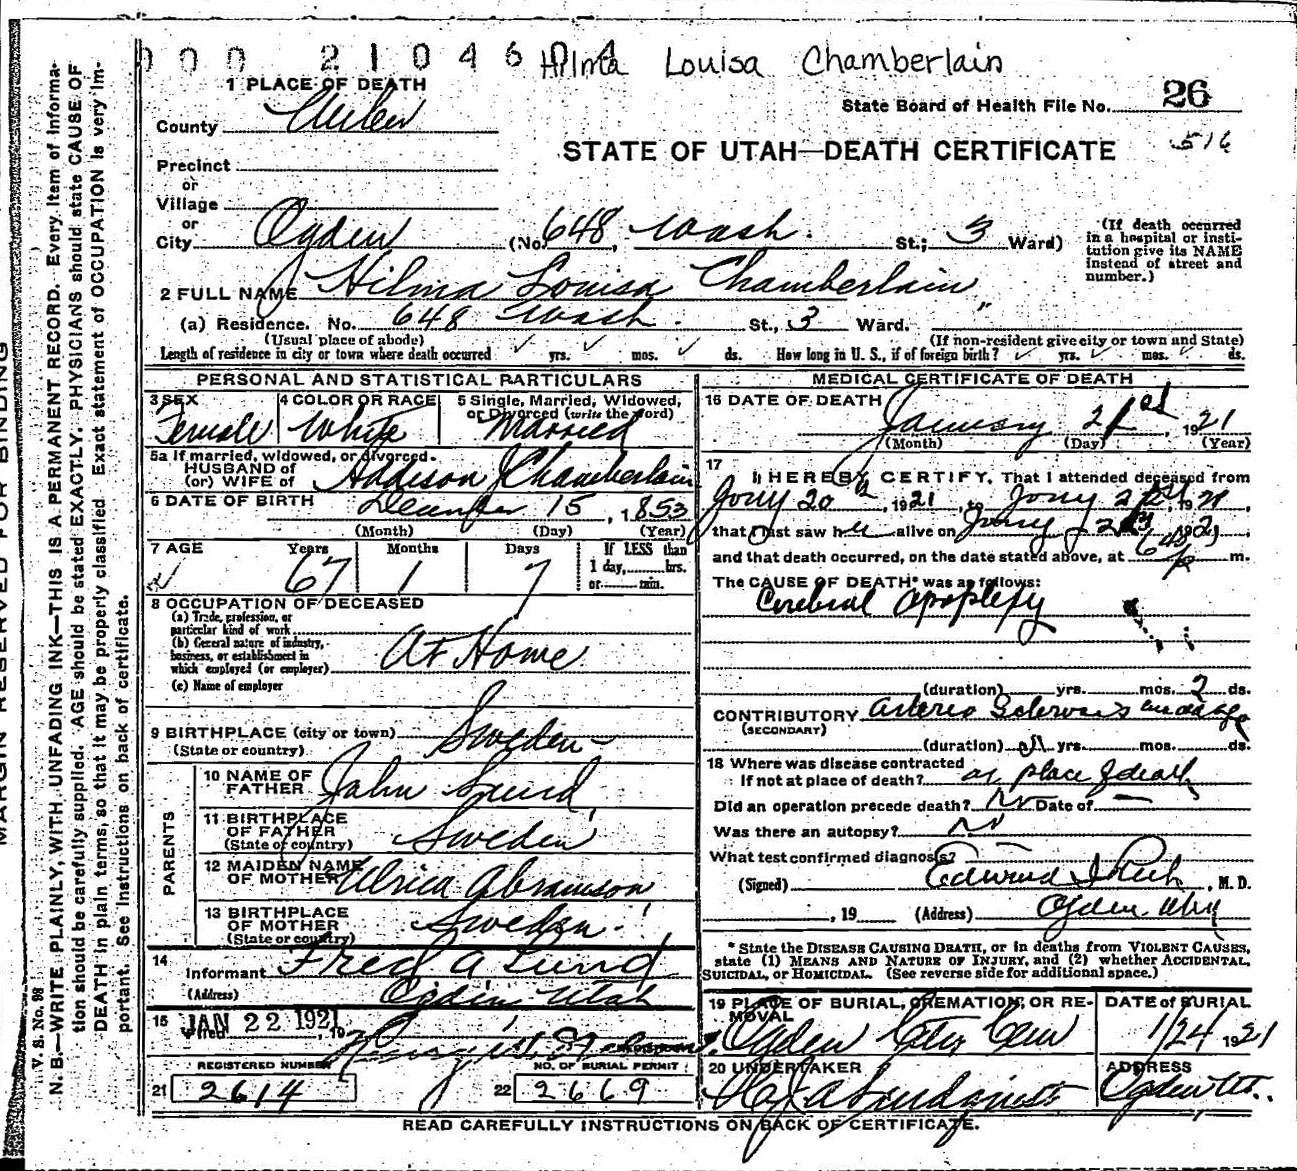 000 210464 Hilma Louisa Chamberlain
1 PLACE OF DEATH
State Board of Health File No. 26
County Weber
STATE OF UTAH—DEATH CERTIFICATE 516
Precinct
or
Village
or
City Ogden (No. 648, Wash. St.; 3 Ward)
(If death occurred in a hospital or institution give its NAME instead of street and number.)
2 FULL NAME Hilma Louisa Chamberlain
(a) Residence. No. 648 Wash. St., 3 Ward.
(Usual place of abode) (If non-resident give city or town and State)
Length of residence in city or town where death occurred yrs. mos. ds. How long in U. S., if of foreign birth? yrs. mos. ds.
PERSONAL AND STATISTICAL PARTICULARS
3 SEX Female
4 COLOR OR RACE White
5 Single, Married, Widowed, or Divorced (write the word) Married
5a If married, widowed, or divorced
HUSBAND of
(or) WIFE of Addison J Chamberlain
6 DATE OF BIRTH December 15, 1853
(Month) (Day) (Year)
7 AGE Years 67 Months 1 Days 7
If LESS than
1 day, hrs.
or min.
8 OCCUPATION OF DECEASED
(a) Trade, profession, or
particular kind of work
(b) General nature of industry,
business, or establishment in
which employed (or employer) At Home
(c) Name of employer
9 BIRTHPLACE (city or town) Sweden
(State or country)
PARENTS
10 NAME OF FATHER John Lund
11 BIRTHPLACE OF FATHER Sweden
(State or country)
12 MAIDEN NAME OF MOTHER Ulrica Abramson
13 BIRTHPLACE OF MOTHER Sweden
(State or country)
14
Informant Fred A Lund
(Address) Ogden Utah
15 JAN 22 1921
Filed , 19
REGISTERED NUMBER
21 2614
NO. OF BURIAL PERMIT
22 2669
MEDICAL CERTIFICATE OF DEATH
16 DATE OF DEATH January 21st, 1921
(Month) (Day) (Year)
17
I HEREBY CERTIFY, That I attended deceased from
Jany 20th, 1921, to Jany 21st, 1921,
that I last saw her alive on Jany 1921
and that death occurred, on the date stated above, at m.
The CAUSE OF DEATH* was as follows:
Cerebral Apoplexy
(duration) yrs. mos. 2 ds.
CONTRIBUTORY Arterio Sclerosis
(SECONDARY)
(duration) yrs. mos. ds.
18 Where was disease contracted
If not at place of death? at place of death
Did an operation precede death? No Date of —
Was there an autopsy? No
What test confirmed diagnosis?
(Signed) Edward I Rich, M. D.
, 19 (Address) Ogden Utah
* State the DISEASE CAUSING DEATH, or in deaths from VIOLENT CAUSES,
state (1) MEANS AND NATURE OF INJURY, and (2) whether ACCIDENTAL,
SUICIDAL, or HOMICIDAL. (See reverse side for additional space.)
19 PLACE OF BURIAL, CREMATION, OR REMOVAL
Ogden City Cem
DATE of BURIAL
1/24 1921
20 UNDERTAKER
ADDRESS
Ogden Ut.
READ CAREFULLY INSTRUCTIONS ON BACK OF CERTIFICATE.
MARGIN RESERVED FOR BINDING
V. S. No. 98
N. B.—WRITE PLAINLY, WITH UNFADING INK—THIS IS A PERMANENT RECORD. Every item of information should be carefully supplied. AGE should be stated EXACTLY. PHYSICIANS should state CAUSE OF DEATH in plain terms, so that it may be properly classified. Exact statement of OCCUPATION is very important. See instructions on back of certificate.